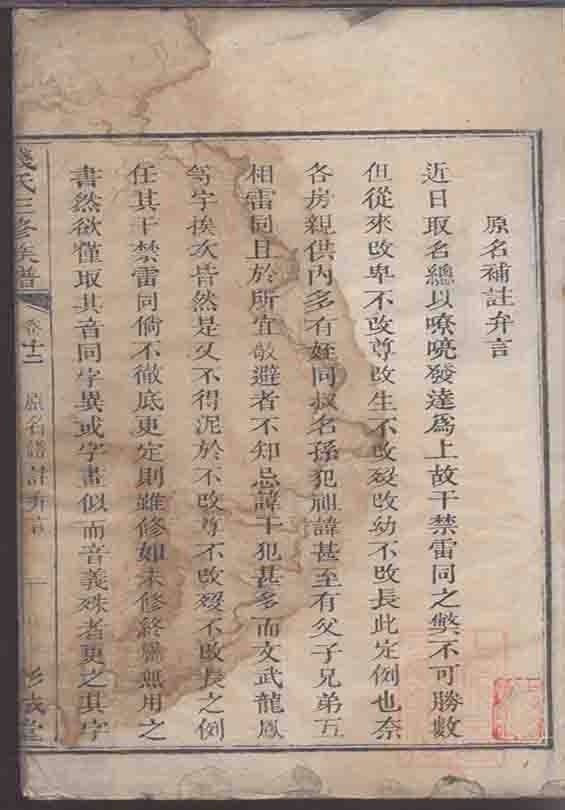 原名補註弁言
近日取名總以嘹喨發達爲上故干禁雷同之獘不可勝數
但從來改卑不改尊改生不改殁改幼不改長此定例也奈
各房親供內多有姪同叔名孫犯祖諱甚至有父子兄弟五
相雷同且於所宜敬避者不知忌諱干犯甚多而文武龍鳳
等字挨次皆然是又不得泥於不改尊不改殁不改長之例
任其干禁雷同倘不徹底更定則雖修如未修終屬無用之
書然欲僅取其音同字異或字畫似而音義殊者更之其字
氏三修族譜
卷十二
原名補註弁言
一